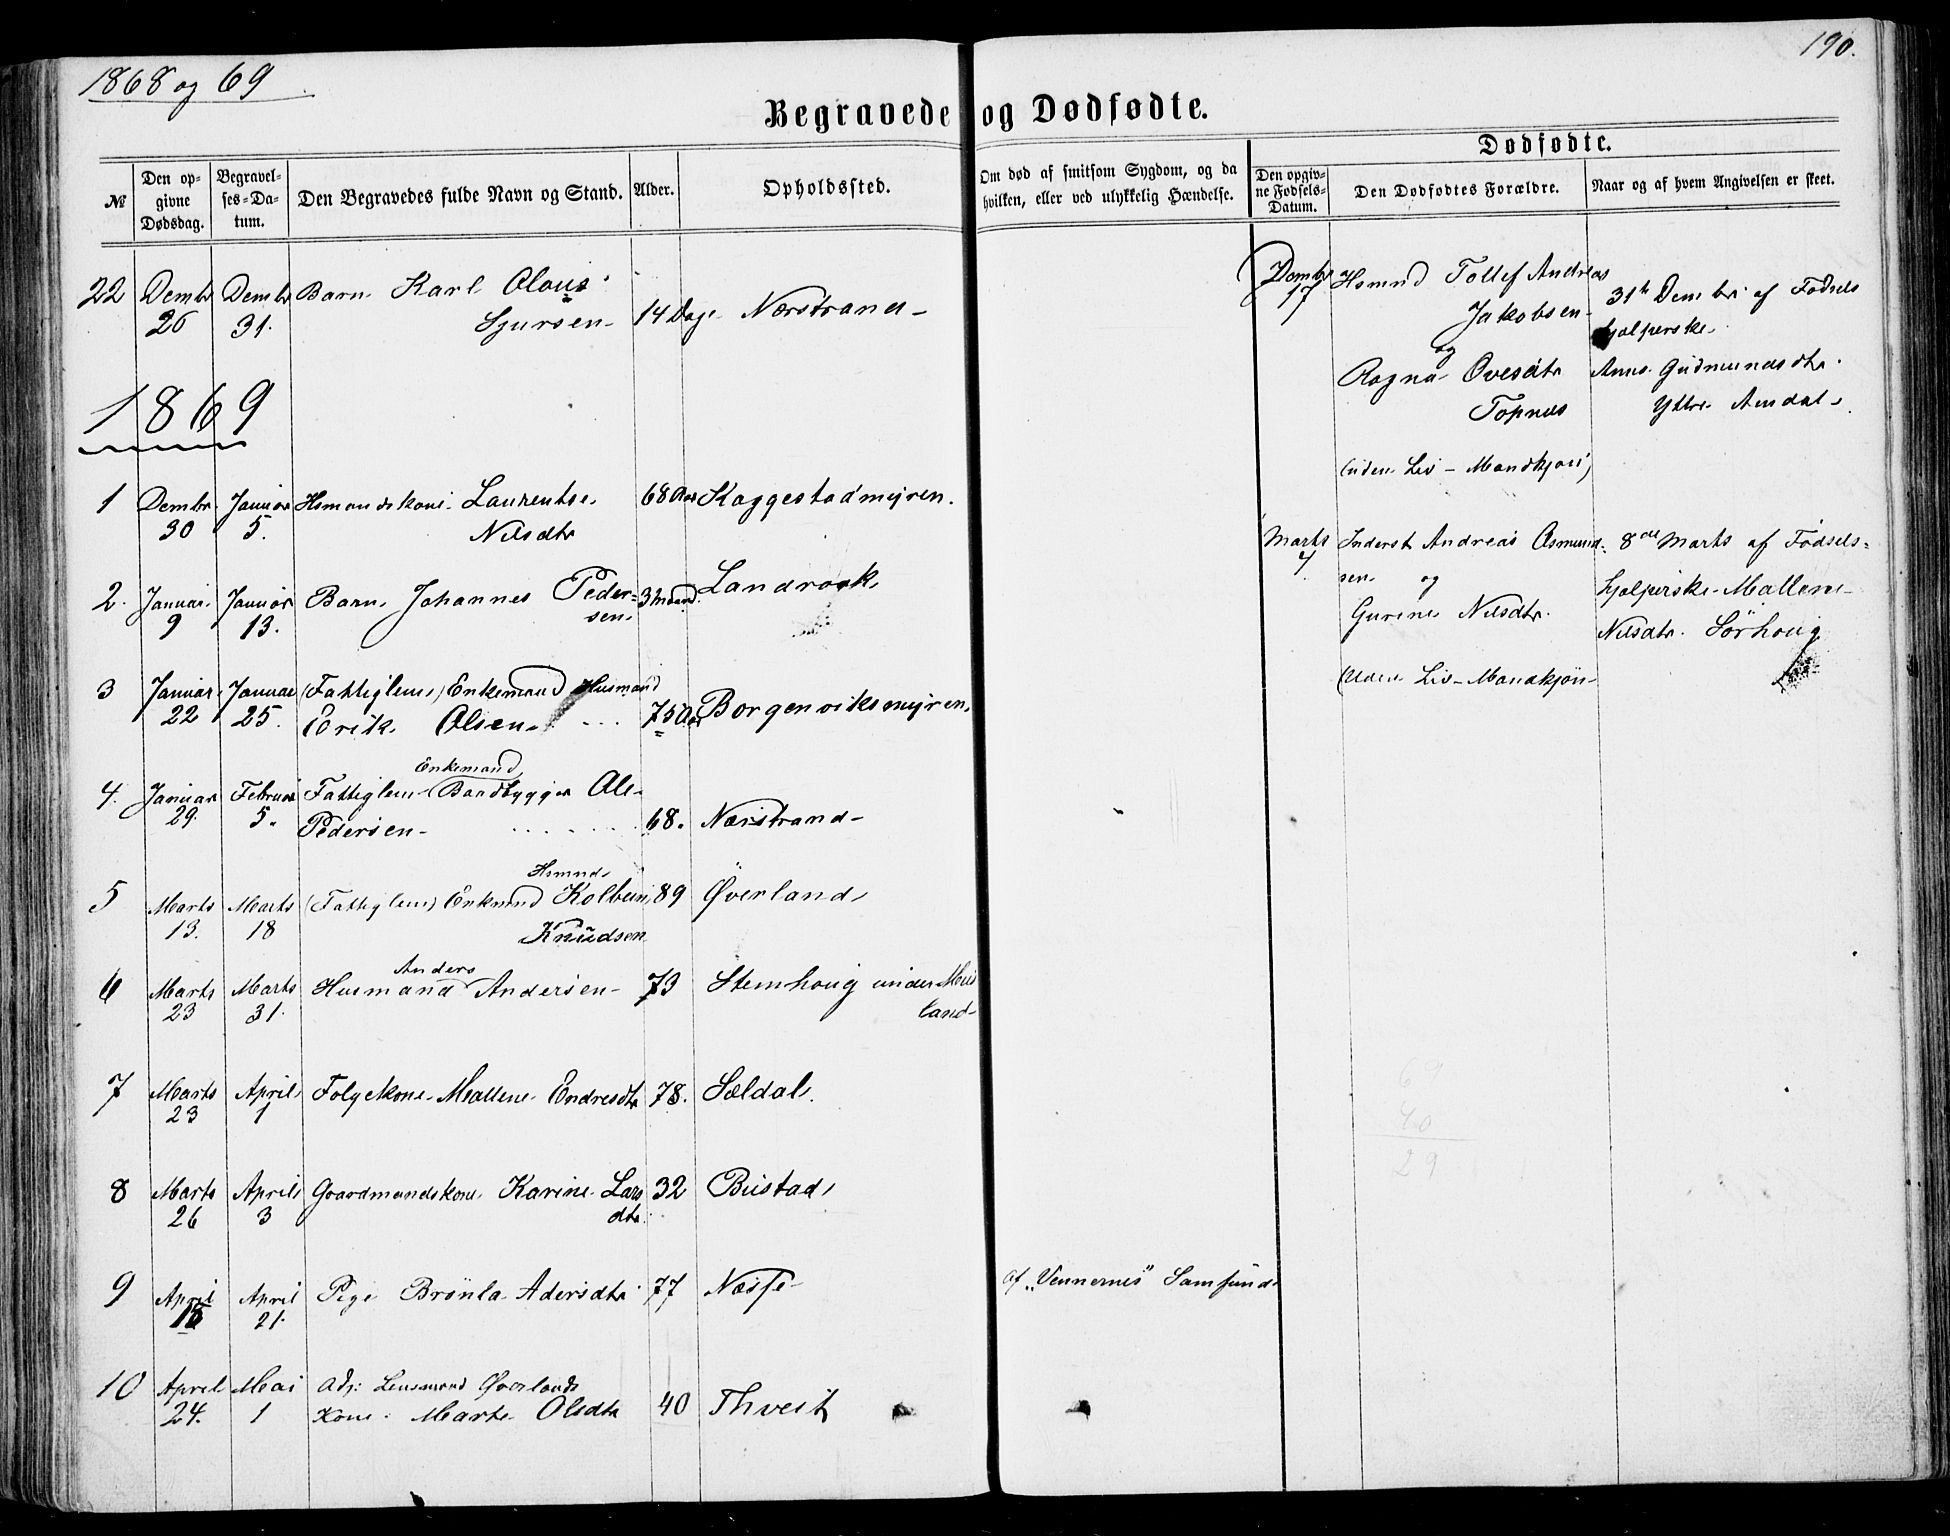 1868 og 69
190.
Begravede og Dødfødte.
№
Den opgivne Dødsdag.
Begravelses-Datum.
Den Begravedes fulde Navn og Stand.
Alder.
Opholdssted.
Om død af smitsom Sygdom, og da hvilken, eller ved ulykkelig Hændelse.
Dødfødte.
Den opgivne Fødsels-Datum.
Den Dødfødtes Forældre.
Naar og af hvem Angivelsen er skeet.
22 Dembr 26 Dembr 31. Barn Karl Olaus
Sjursen 14 Dage Nærstrand
1869
1 Dembr 30 Januar 5. Hsmandskone Laurentse
Nilsdtr 68 Aar Kaggestadmyren.
2. Januar 9 Januar 13. Barn Johannes Peder=
sen 3 Maand. Landraak
3 Januar 22 Januar 25. (Fattiglem) Enkemand Husmand
Erik Olsen 75 Aar Borgenviksmyren
4. Januar 29. Februar 5. Fattiglem Enkemand Baadbygger Ole
Pedersen 68. Nærstrand
5 Marts 13. Marts 18 (Fattiglem) Enkmand Hsmnd Kolbein
Knudsen 89 Øverland
6 Marts 23 Marts 31. Husmand Anders Andersen 73 Stemhoug under
land
7 Marts 23 April 1 Folgekone Mallene Endresdtr 78. Sældal.
8 Marts 26 April 3 Gaardmandskone Karine Lars
dtr. 32 Bustad
9 April April 21. Pige Brønla Adersdtr 77 Næsse
af "Vennernes" Samfund
10 April 24. Mai 1 Adj: Lensmand Øverlands
Kone Marte Olsdtr 40 Thveit
Dembr 17 Hsmnd Tollef Andreas
Jakobsen
og
Ragna Ovesdtr
Topnes
(uden Liv - Mandkjøn)
31te Dembr. af Fødsels
hjelperske
Anne Gudmundsdtr
Yttre Amdal
Marts 7 Inderst Andreas Osmund=
sen og
Gurine Nilsdtr.
(Uden Liv - Mandkjøn
8de Marts af Fødsels=
hjelperske Mallene
Nilsdtr. Sørhoug
69
40
29